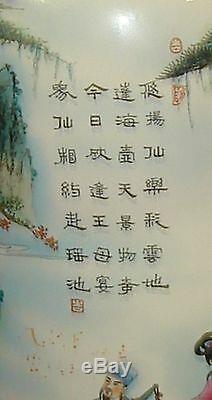 悠揚仙樂彩雲地
蓬海壺天景物奇
今日欣逢王母宴
眾仙相約赴瑤池
ebay